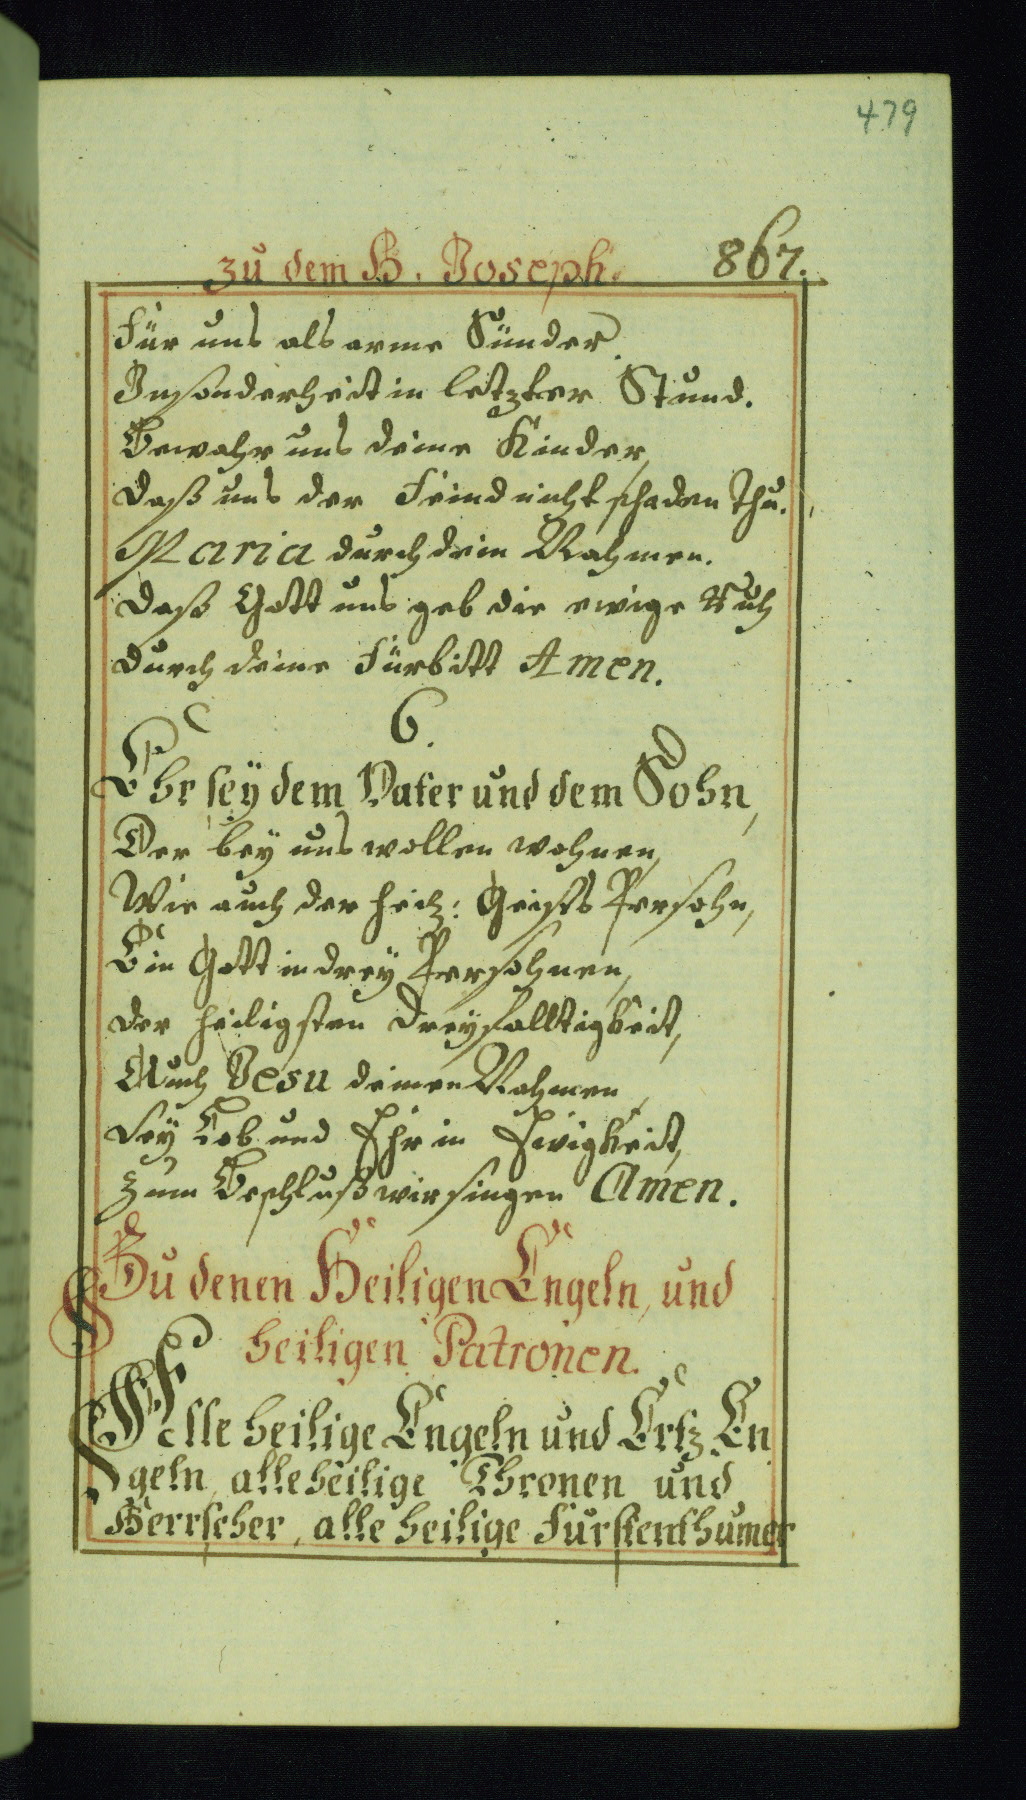 479
zu dem H. Joseph. 867.
Für uns als arme Sünder.
Insonderheit in letzter Stund.
Bewahr uns deine Kinder,
Daß uns der Feind nicht schaden thu.
Maria durch dein Nahmen.
Daß Gott uns geb die ewige Ruh
Durch deine Fürbitt Amen.
6.
Ehr seÿ dem Vater und dem Sohn,
Der beÿ uns wollen wohnen,
Wie auch der heil: Geists Persohn,
Ein Gott in dreÿ Persohnen,
der heiligsten Dreÿfalltigkeit,
Auch Jesu deinen Nahmen,
Seÿ Lob und Ehr in Ewigkeit,
Zum Beschluß wir singen Amen.
Zu denen Heiligen Engeln, und
heiligen Patronen.
heilige Engeln und Ertz En
geln, alle heilige Thronen und
Herrscher, alle heilige Fürstenthumer